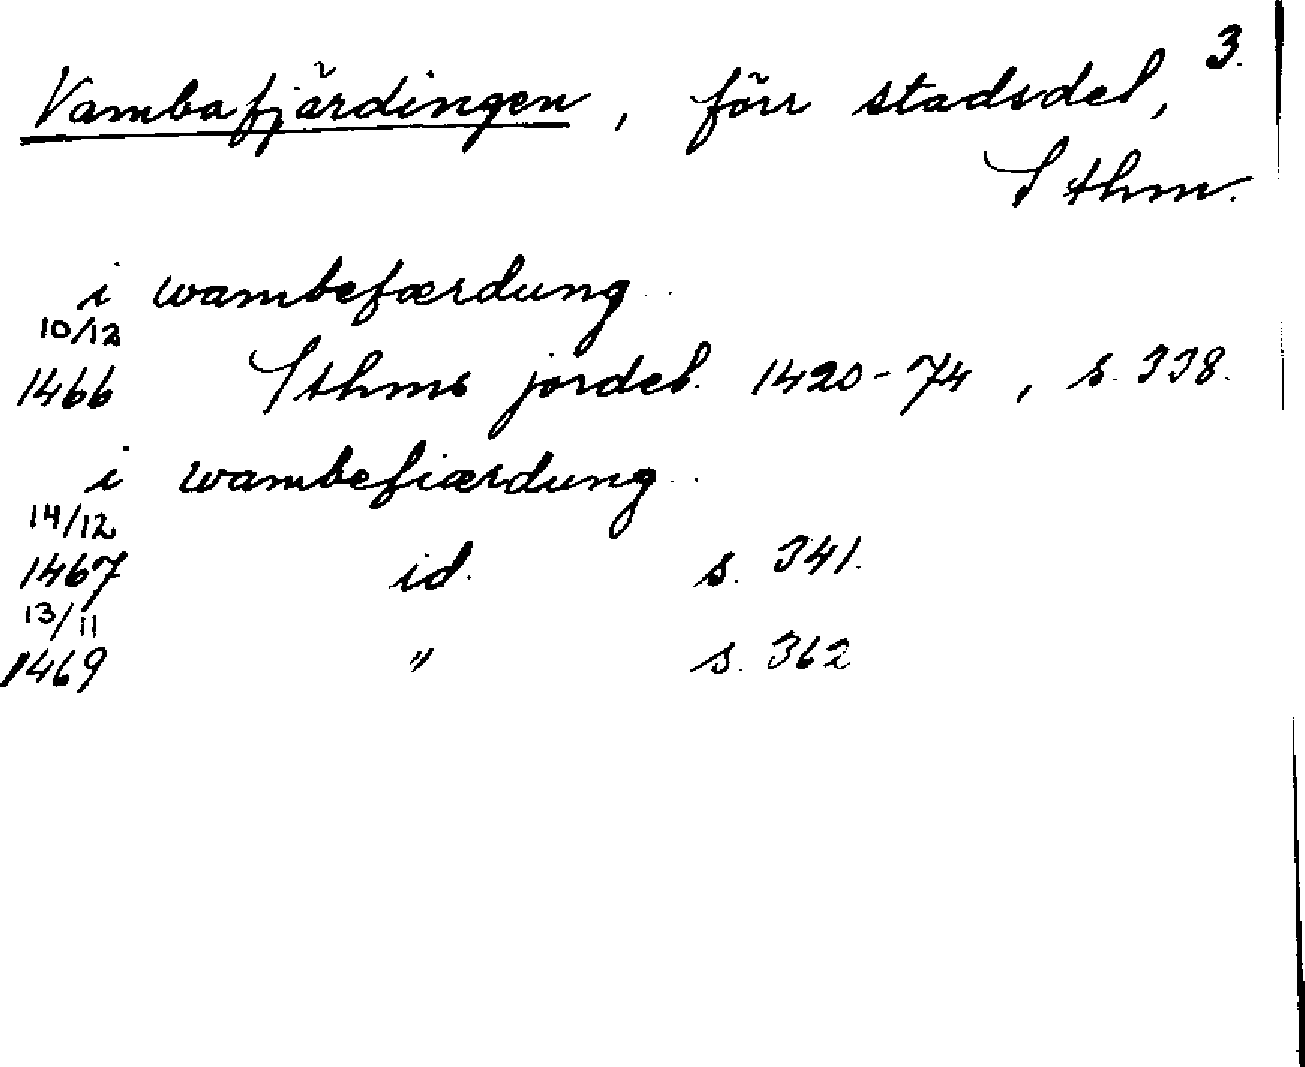 3.
Vambafjärdingen, förr stadsdel,
Sthm.
i wambefærdung
10/12
1466 Sthms jordeb. 1420-74, s. 338.
i wambefiærdung
14/12
1467 id. s. 341.
13/11
1469 " s. 362